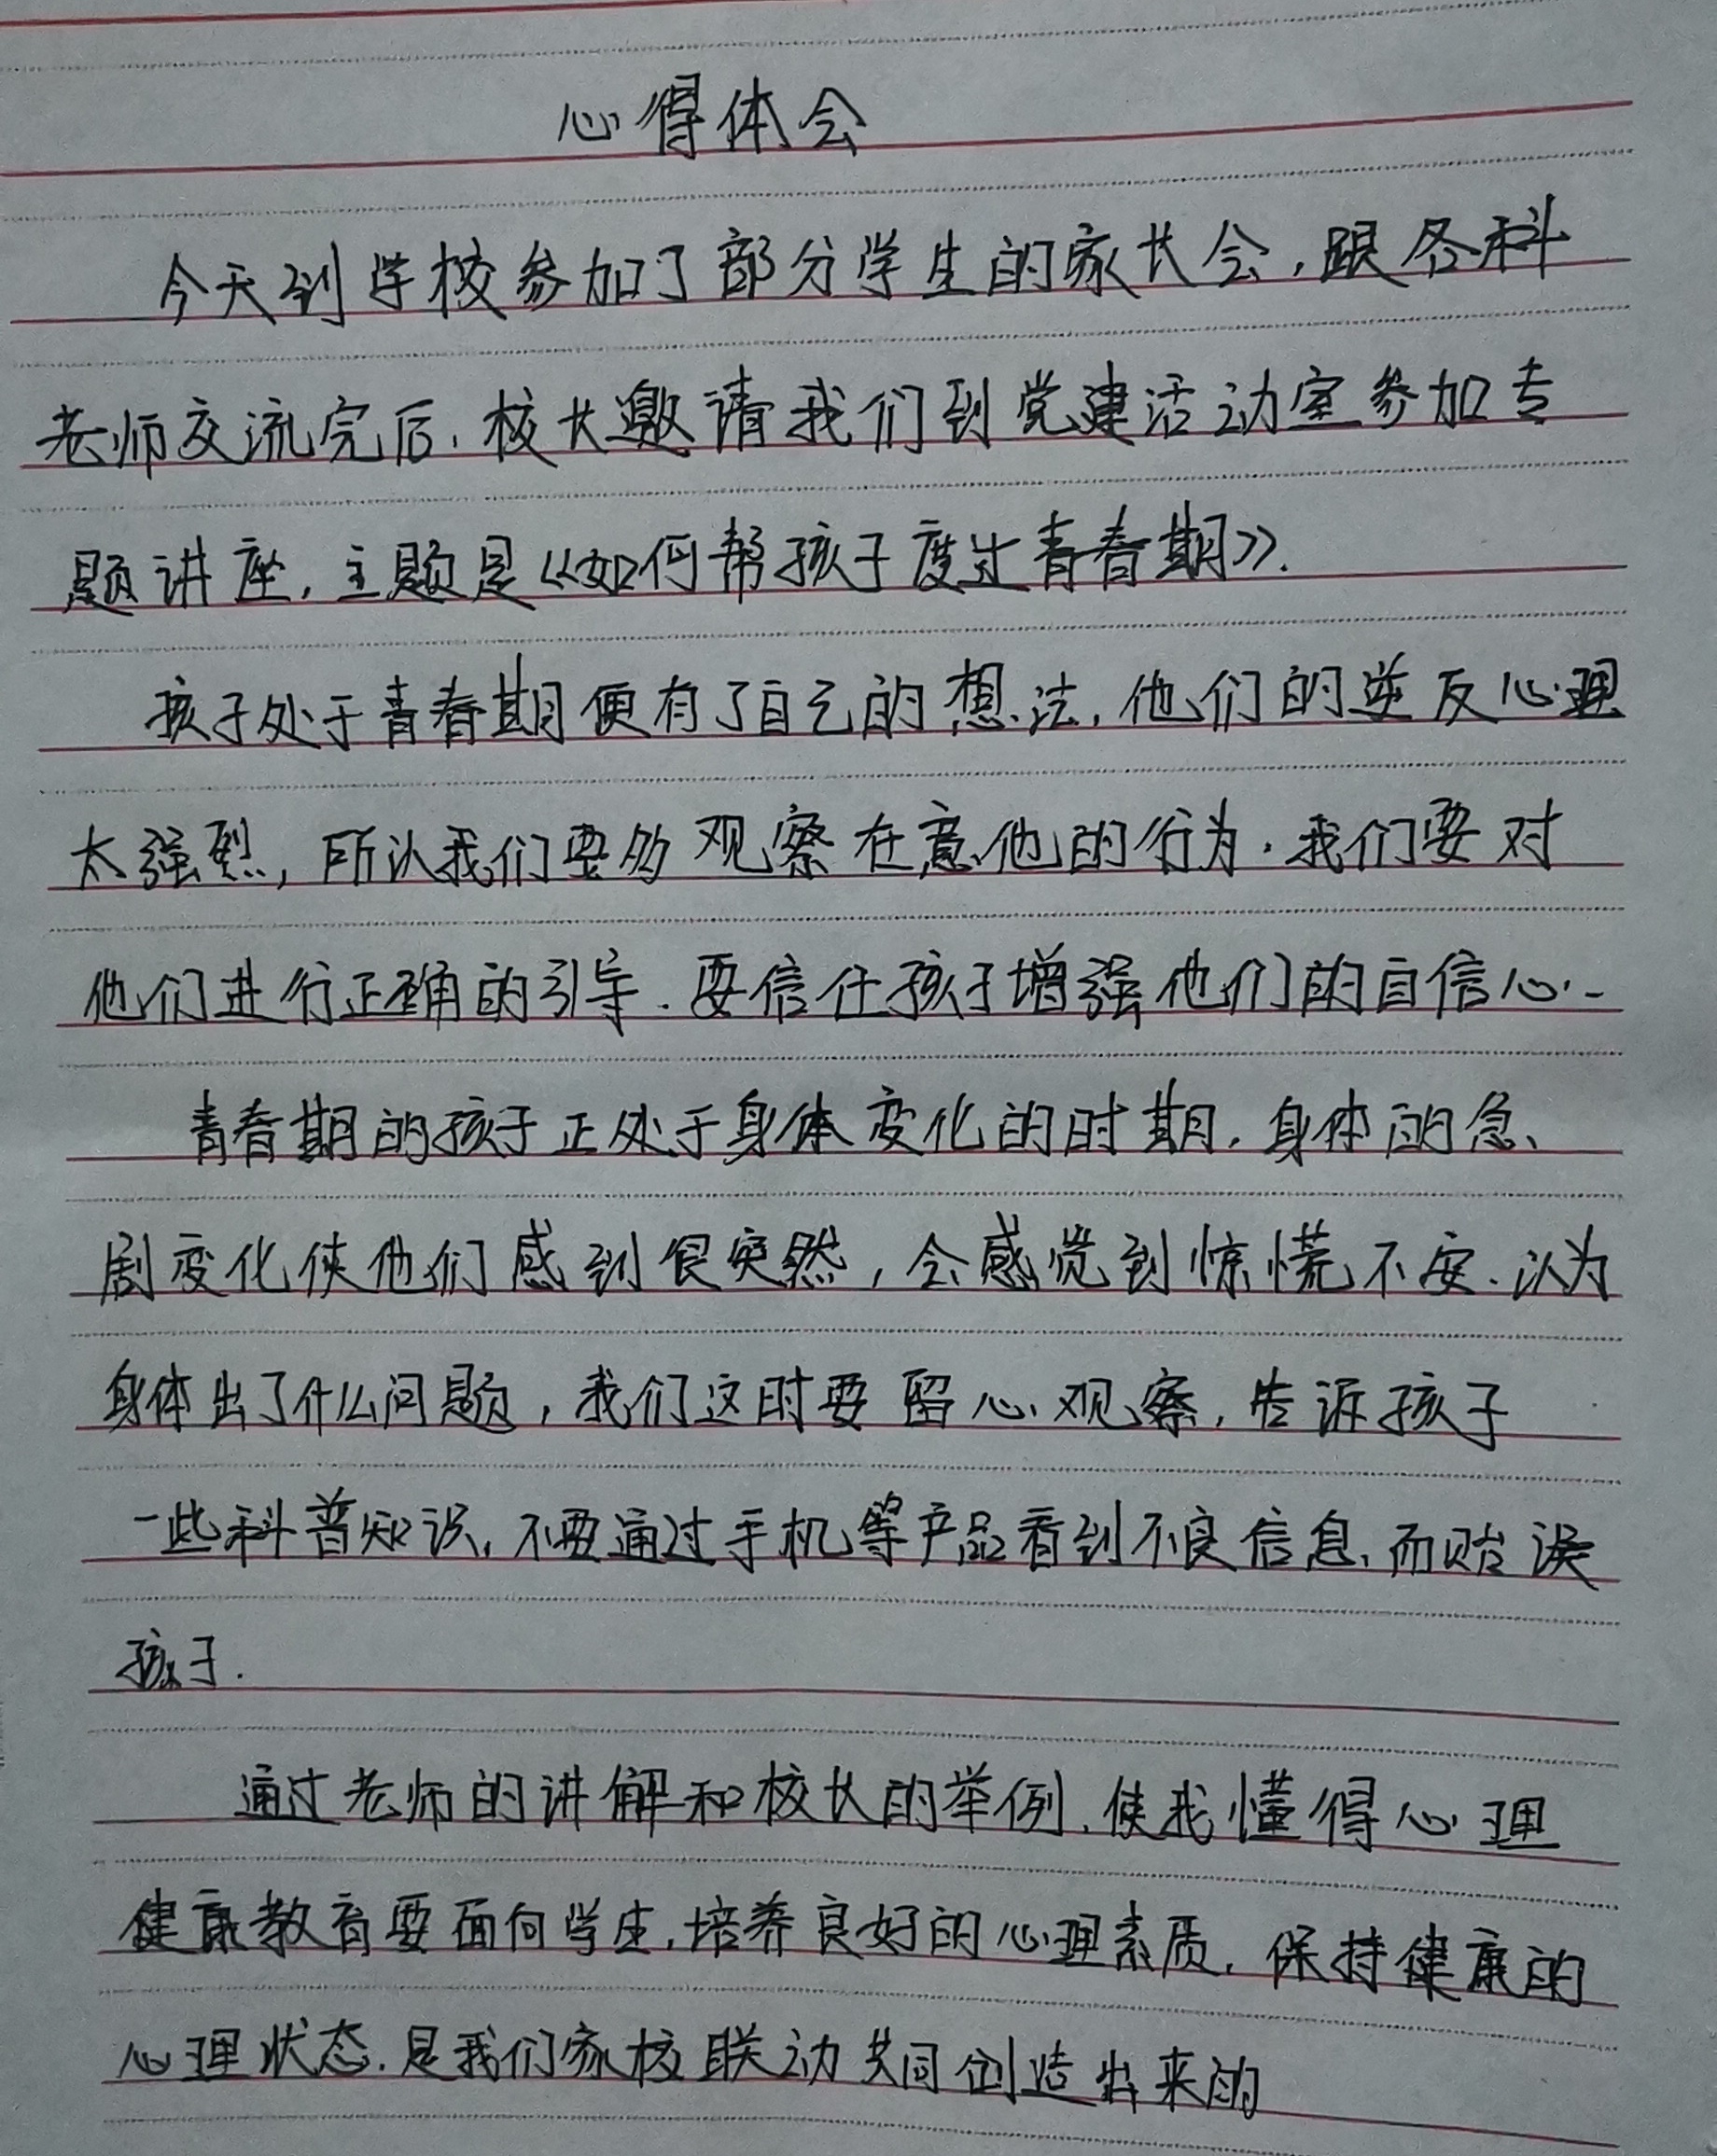 心得体会
今天到学校参加了部分学生的家长会,跟各科
老师交流完后,校长邀请我们到党建活动室参加专
题讲座,主题是《如何帮孩子度过青春期》.
孩子处于青春期便有了自己的想法,他们的逆反心理
太强烈,所以我们要多观察在意他的行为.我们要对
他们进行正确的引导.要信任孩子增强他们的自信心..
青春期的孩子正处于身体变化的时期,身体的急、
剧变化使他们感到很突然,会感觉到惊慌不安.认为
身体出了什么问题,我们这时要留心观察,告诉孩子
一些科普知识,不要通过手机等产品看到不良信息,而贻误
孩子.
通过老师的讲解和校长的举例,使我懂得心理
健康教育要面向学生,培养良好的心理素质,保持健康的
心理状态.是我们家校联动共同创造出来的